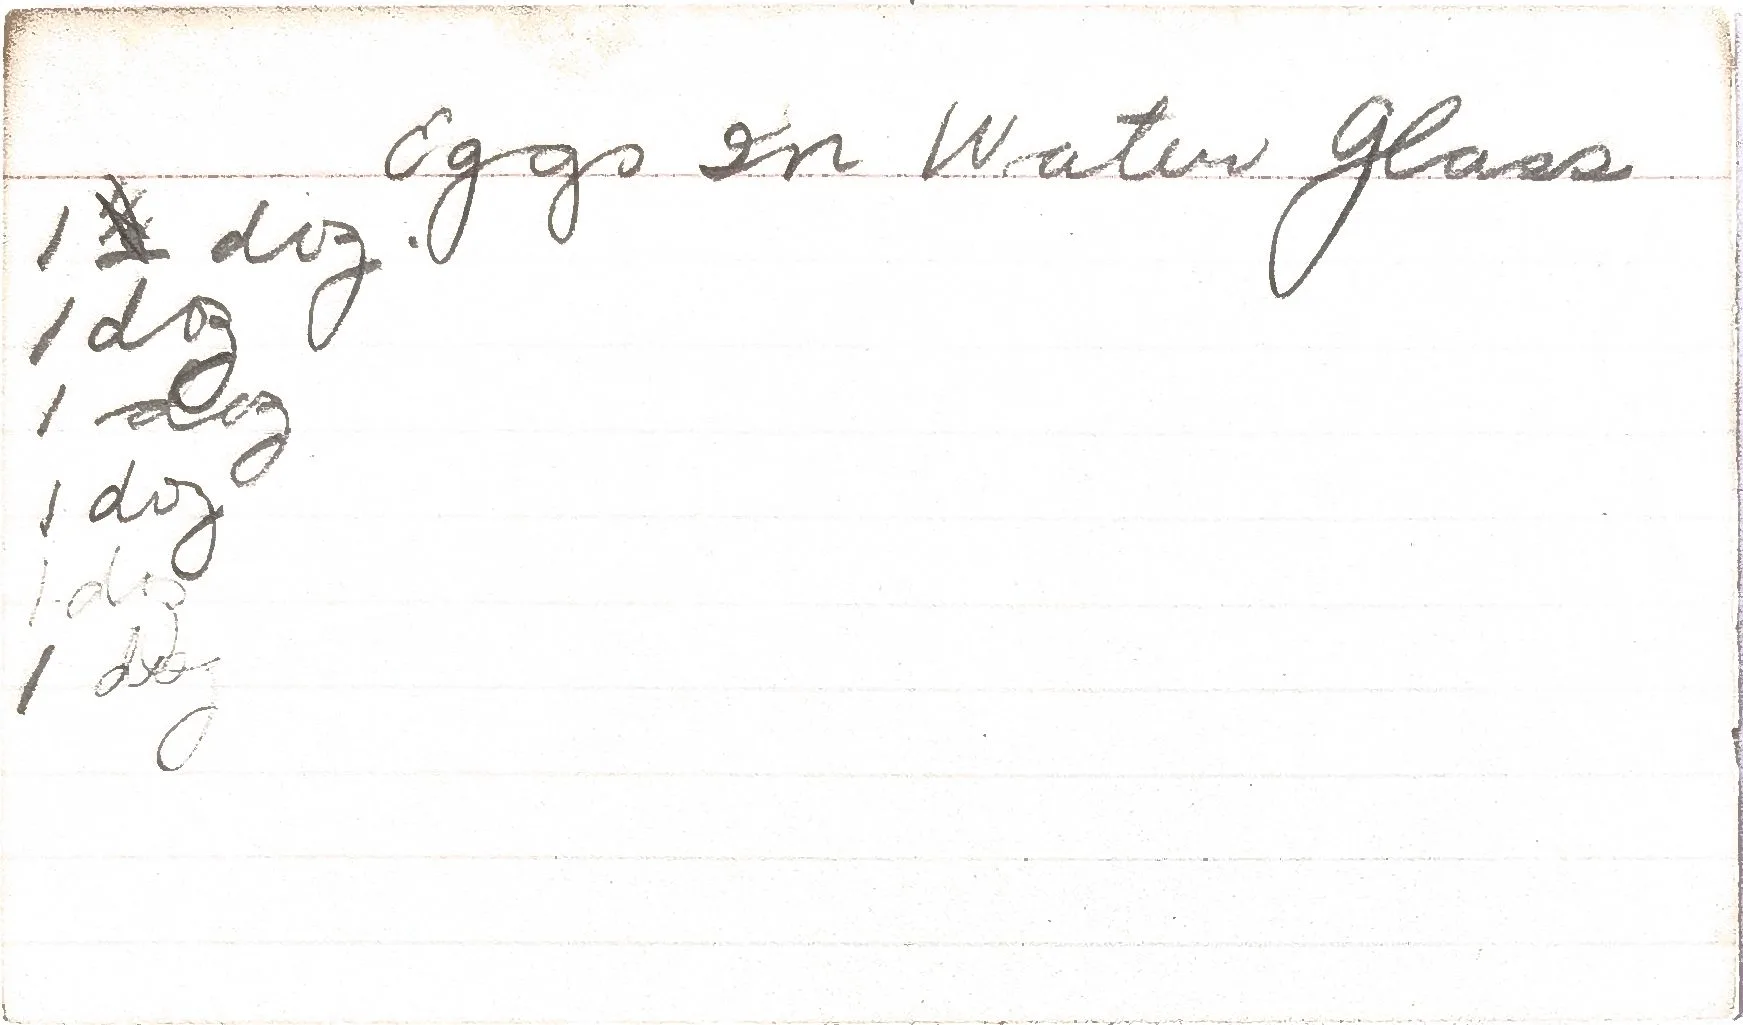 Eggs In Water Glass
1 doz.
1 doz
1 doz
1 doz
1 doz
1 doz